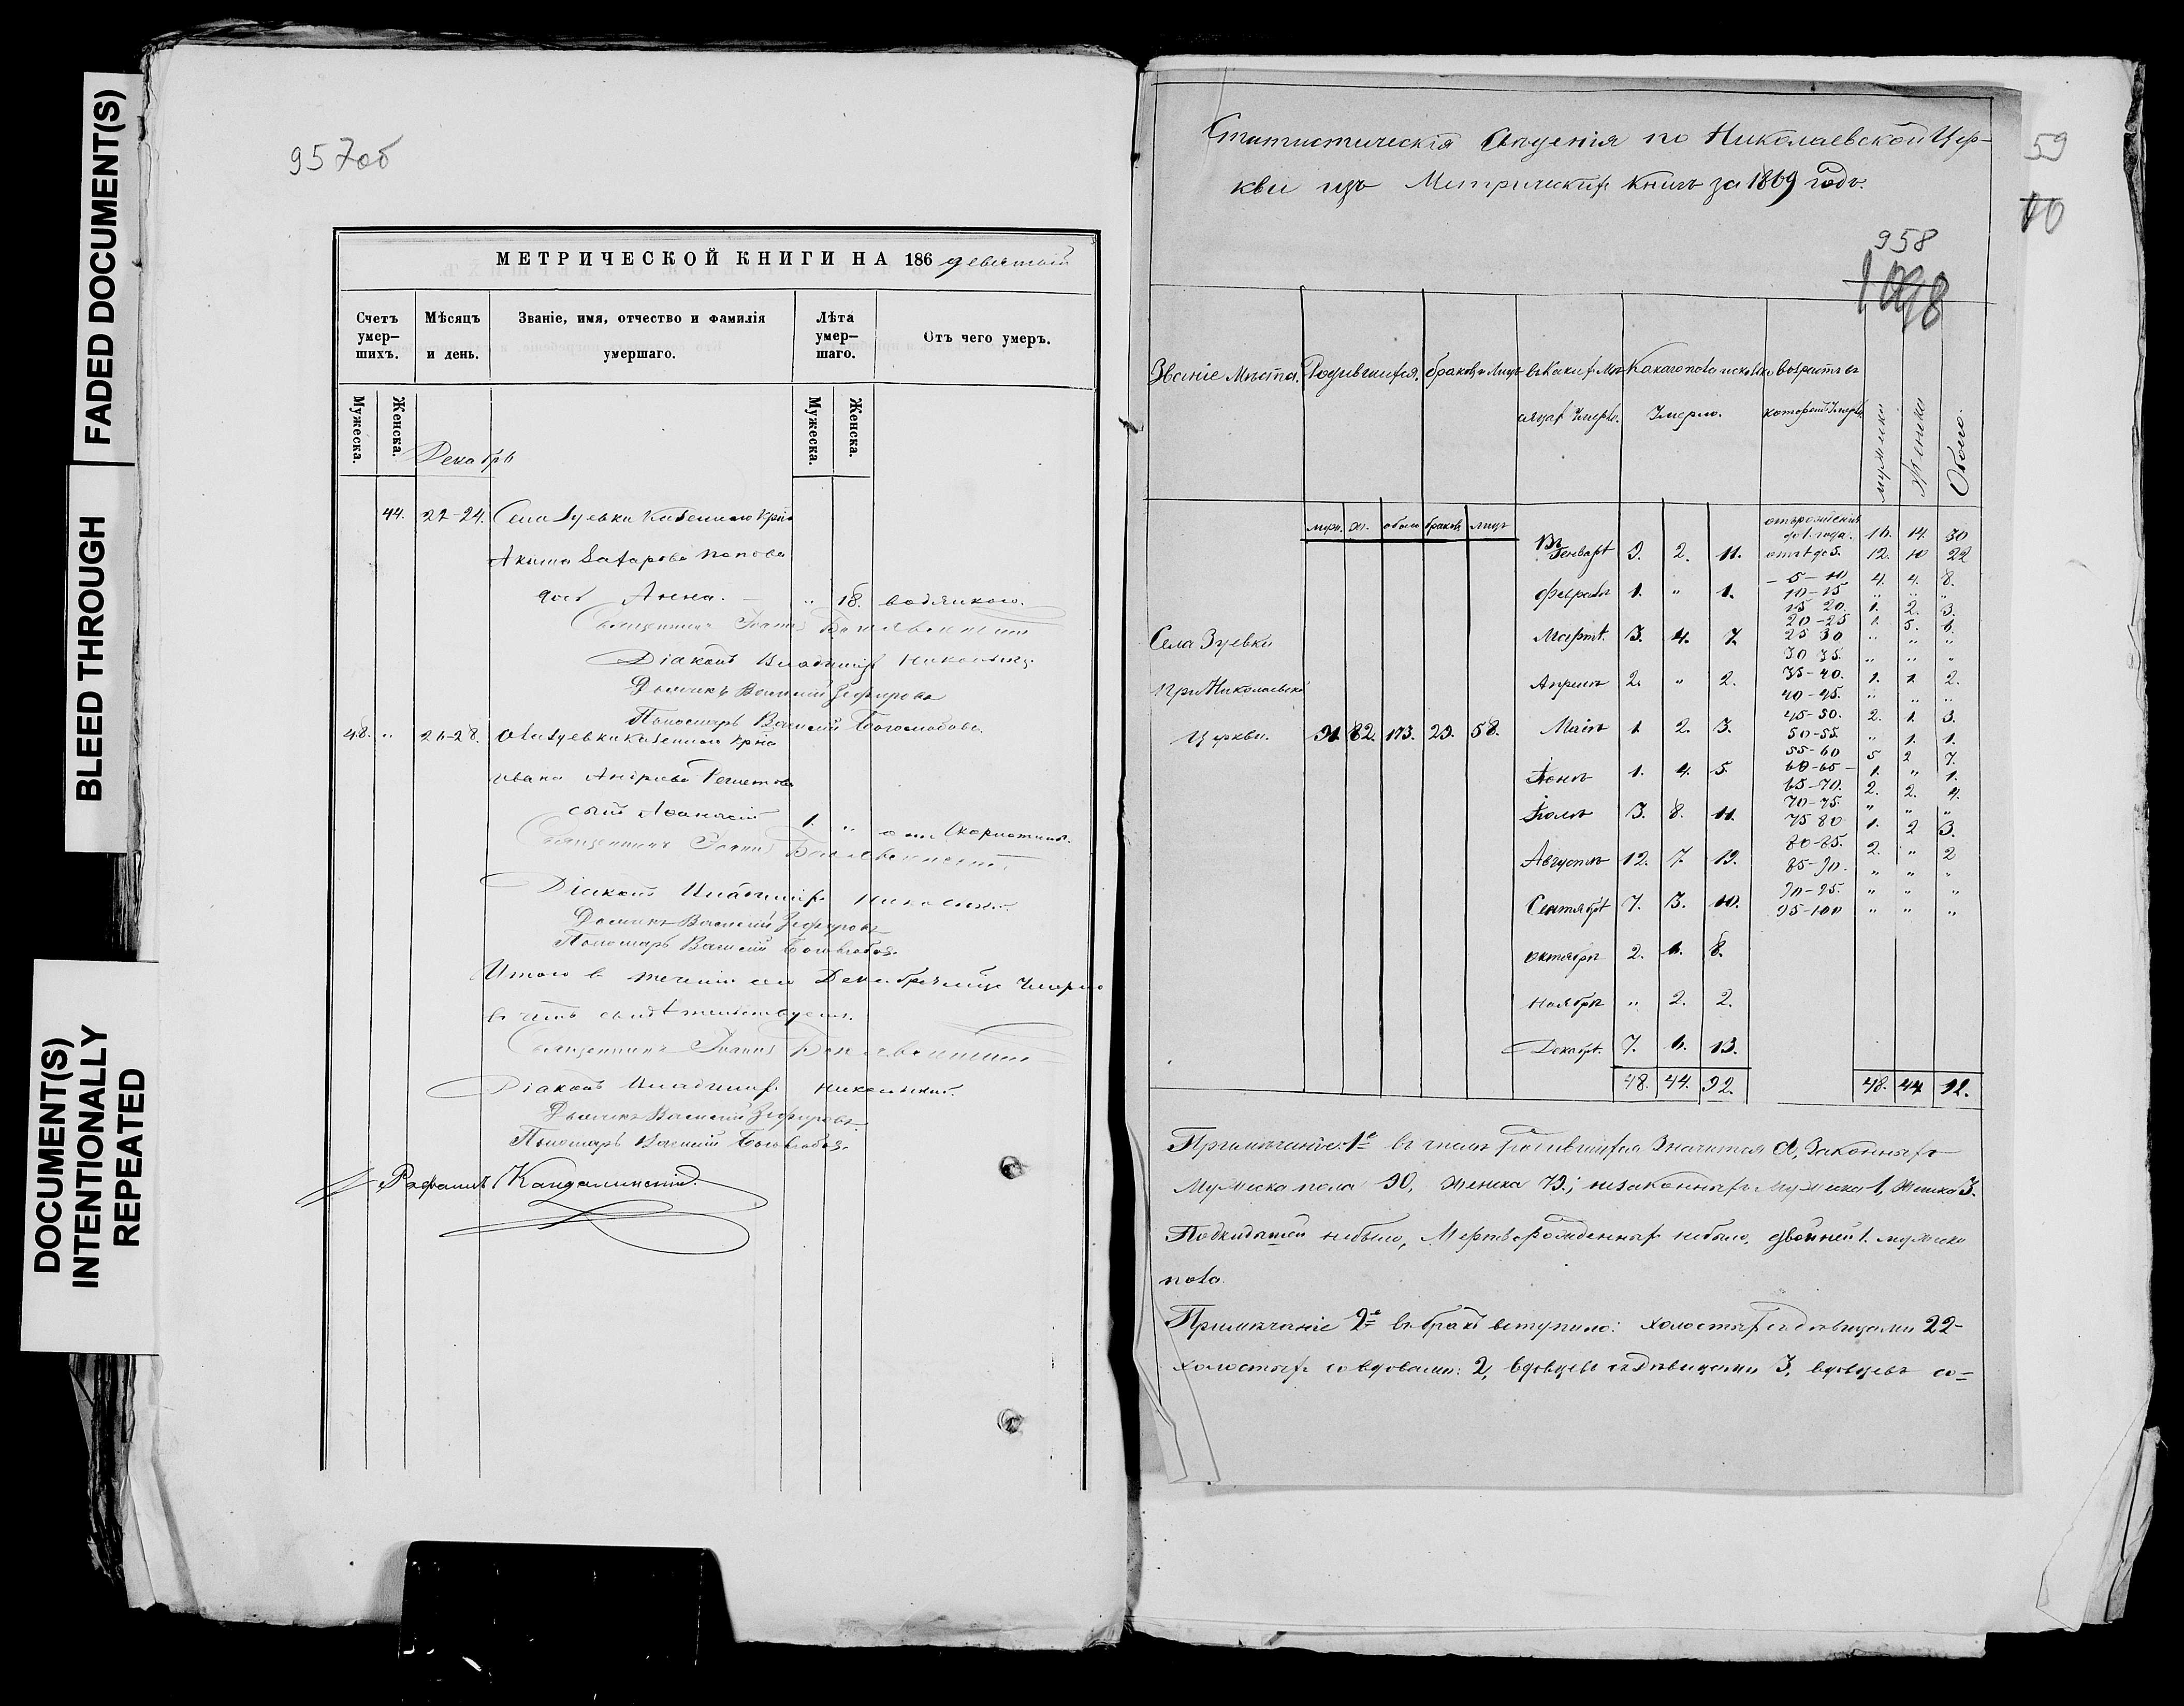 FADED DOCUMENT(S)
BLEED THROUGH
DOCUMENT(S)
INTENTIONALLY
REPEATED
957об
МЕТРИЧЕСКОЙ КНИГИ НА 186 девятый
Счетъ умер-шихъ.
Мѣсяцъ и день.
Званіе, имя, отчество и фамилія умершаго.
Лѣта умер-шаго.
Отъ чего умеръ.
Мужеска.
Женска.
Мужеска.
Женска.
Декабрь
44. 22-24. Села Зуевки Казеннаго Крна
Акима Захарова Попова
дочь Анна. — „ 18. водянкою.
Священникъ Іоаннъ Богоявленскій
Діаконъ Владиміръ Никольскій.
Дьячекъ Василій Зефировъ
Пономарь Василій Боголюбовъ.
48. „ 26-28. Села Зуевки Казеннаго Крна
Ивана Андреева Решетова
сынъ Афанасій 1. „ отъ Скарлатины.
Священникъ Іоаннъ Богоявленскій.
Діаконъ Владиміръ Никольскій.
Дьячекъ Василій Зефировъ
Пономарь Василій Боголюбовъ.
Итого в теченіи Декабря умерло
в чемъ свидѣтельствуемъ.
Священникъ Іоаннъ Богоявленскій
Діаконъ Владиміръ Никольскій.
Дьячекъ Василій Зефировъ.
Пономарь Василій Боголюбовъ.
Кандалинскій.
59
10
Статистическія Свѣденія по Николаевской Цер-
кви изъ Метрическихъ книгъ за 1869 годъ.
958
1098
Званіе Мѣста. Родившихся. браковъ и Лицъ въ какихъ мѣ- Какого пола и сколько возрастъ въ
сяцахъ Умерло. Умерло. которомъ Умерло.
мужески Женски Обоего.
муж. ж. обоего браковъ лицъ
отъ рожденія
до 1 года. 16. 14. 30
Въ Генварѣ 9. 2. 11. отъ 1 до 5. 12. 10 22
– 5 – 10 4. 4. 8.
Февралѣ 1. „ 1. 10-15 „ „ „
15 20. 1. 2. 3.
20-25 1. 5. 6.
Села Зуевки Мартѣ. 3. 4. 7. 25 30 „ „ „
30 35. „ „ „
при Николаевской Апрелѣ 2. „ 2. 35-40. 1. 1. 2.
40-45. „ „ „
Церкви. 91. 82. 173. 29. 58. Маіѣ 1. 2. 3. 45-50. 2. 1. 3.
50-55. „ 1. 1.
55-60 5 2 7.
Іюнѣ 1. 4. 5. 60-65 – 1. „ 1.
65-70. 2. 2. 4.
70-75. „ „ „
Іюлѣ 3. 8. 11. 75 80 1. 2 3.
80-85. 2. „ 2
Августѣ 12. 7. 19. 85-90. „ „ „
90-95. „ „ „
Сентябрѣ 7. 3. 10. 95-100 „ „ „
Октябрѣ 2. 6. 8.
Ноябрѣ „ 2. 2.
Декабрѣ. 7. 6. 13.
48. 44. 92. 48. 44 92.
Примѣчаніе: 1е въ числѣ родившихся Значится а, Законныхъ
Мужеска пола 90, Женска 79.; незаконныхъ Мужеска 1, Женска 3.
Подкидышей небыло, Мертворожденныхъ небыло, двойней 1. мужеска
пола.
Примѣчаніе 2е въ бракъ вступило: холостыхъ съ дѣвицами 22-
холостыхъ со вдовами: 2, вдовцевъ съ дѣвицами 3, вдовцевъ со=